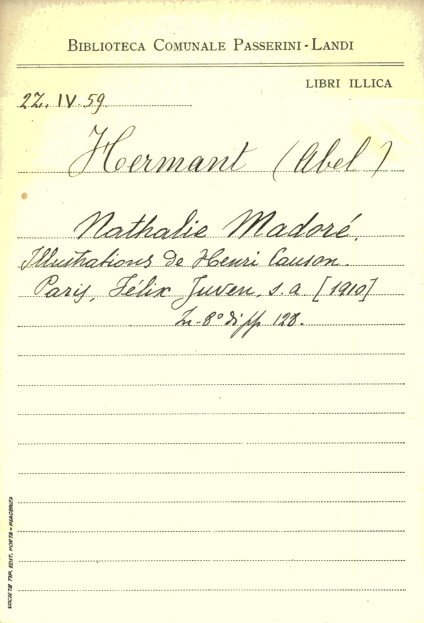 BIBLIOTECA COMUNALE PASSERINI-LANDI
LIBRI ILLICA
22. IV. 59
Hermant (Abel)
Nathalie Madoré.
Illustrations de Henri Causon.
Paris, Félix Juven, s. a [1910]
In-8° di pp 128.
SOCIETÀ TIP. EDIT. PORTA - PIACENZA